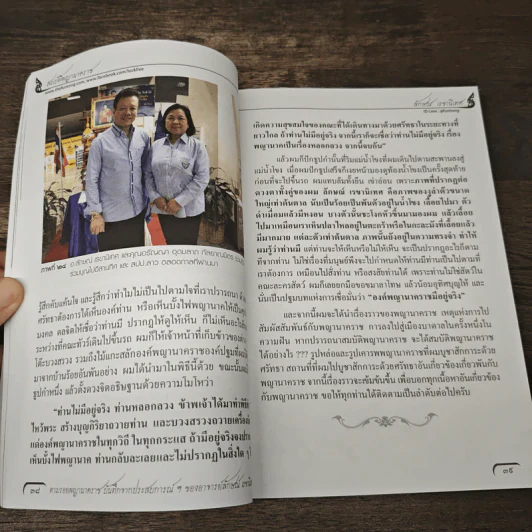 องค์ปฐมพญานาคราช
ภาพที่ ๒๔ อ.ลักษณ์ เรขานิเทศ และคุณอรัญญา
รวมบุญในอีสานทิศ และ สปป.ลาว ตลอดกาลที่ผ่านมา
รู้สึกตื่นเต้นใจ และรู้สึกว่าทำไมไม่เป็นไปตามใจที่เราปรารถนา
ศรัทธาต้องการได้เห็นองค์ท่าน หรือเห็นบั้งไฟพญานาคให้เป็น
มงคล ดลจิตให้เชื่อว่าท่านมี ปรากฏให้ดูให้เห็น ก็ไม่เห็นอะไร
ระหว่างที่คณะทัวร์เดินไปขึ้นรถ ผมก็ให้เจ้าหน้าที่เก็บข้าวของต่าง
โต๊ะบวงสรวง รวมถึงไม้แกะสลักองค์พญานาคราชองค์ปฐม
มาจากบ้านร้อยอันพันอย่าง ผมได้นำมาในพิธีนี้ด้วย ขณะนั้น
รูปกำหนึ่ง แล้วตั้งดวงจิตอธิษฐานด้วยความไม่ไหวว่า
"ท่านไม่มีอยู่จริง ท่านหลอกลวง ข้าพเจ้าได้มาทำพิธี
ไหว้พระ สร้างบุญกิริยาถวายท่าน และบวงสรวงถวายเครื่อง
แด่องค์พญานาคราชในทุกวิถี ในทุกกระแส ถ้ามีอยู่จริงจง
เห็นบั้งไฟพญานาค ท่านกลับละเลยและไม่ปรากฏในสิ่งใด ๆ
๓๘ ตามรอยพญานาคราช บันทึกจากประสบการณ์ ๆ ของอาจารย์ลักษณ์
ลักษณ์ เรขานิเทศ
เกิดความสุขสมใจของคณะที่ได้เดินทางมาด้วยศรัทธาในระยะทางที่
ยาวไกล ถ้าท่านไม่มีอยู่จริง จากนี้เราก็จะเชื่อว่าท่านไม่มีอยู่จริง เรื่อง
พญานาคเป็นเรื่องหลอกลวง จากนี้จบกัน"
แล้วผมก็ปักธูปกำนั้นที่ริมแม่น้ำโขงที่ผมเดินไปตามสะพานลงสู่
แม่น้ำโขง เมื่อผมปักธูปเสร็จก็เงยหน้ามองดูท้องน้ำโขงเป็นครั้งสุดท้าย
ก่อนที่จะไปขึ้นรถ ผมแทบล้มทั้งยืน เข่าอ่อน เพราะภาพที่ปรากฏต่อ
ดวงตาทั้งคู่ของผม ลักษณ์ เรขานิเทศ คือภาพของงูลำตัวขนาด
ใหญ่เท่าต้นตาล นับเป็นร้อยเป็นพันตัวอยู่ในน้ำโขง เลื้อยไปมา ตัว
ดำเมื่อมแล้วมีหงอน บางตัวนั้นชะโงกหัวขึ้นมามองผม แล้วเลื้อย
ไปมาเหมือนเราเห็นปลาไหลอยู่ในกะทะหรือในกะละมังที่เลื้อยแล้ว
มีมากมาย แต่ละตัวเท่าต้นตาล ภาพนั้นยังอยู่ในความทรงจำ ทำให้
ผมรู้ว่าท่านมี แต่ท่านจะให้เห็นหรือไม่ให้เห็น จะเป็นปรากฏอะไรก็ตาม
ที่จากท่าน ไม่ใช่เรื่องที่มนุษย์พึงจะไปกำหนดให้ท่านมีท่านเป็นไปตามที่
เราต้องการ เหมือนไปสั่งท่าน หรือสงสัยท่านได้ เพราะท่านไม่ใช่สัตว์ใน
คณะละครสัตว์ ผมก็เลยยกมือขอขมาลาโทษ แล้วน้อมอุทิศบุญให้ และ
นั่นเป็นปฐมบทแห่งการเชื่อมั่นว่า "องค์พญานาคราชมีอยู่จริง"
และจากนี้ผมจะได้นำเรื่องราวของพญานาคราช เหตุแห่งการไป
สัมผัสสัมพันธ์กับพญานาคราช การลงไปสู่เมืองบาดาลในครั้งหนึ่งใน
ความฝัน หากปรารถนาสมบัติพญานาคราช จะได้สมบัติพญานาคราช
ได้อย่างไร ??? รูปหล่อและรูปเคารพพญานาคราชที่ผมบูชาสักการะด้วย
ศรัทธา สถานที่ที่ผมไปบูชาสักการะด้วยศรัทธาอันเกี่ยวข้องเกี่ยวพันกับ
พญานาคราช จากนี้เรื่องราวจะเข้มข้นขึ้น เพื่อบอกทุกเนื้อหาอันเกี่ยวข้อง
กับพญานาคราช ขอให้ทุกท่านได้ติดตามเป็นลำดับต่อไปครับ
๓๙